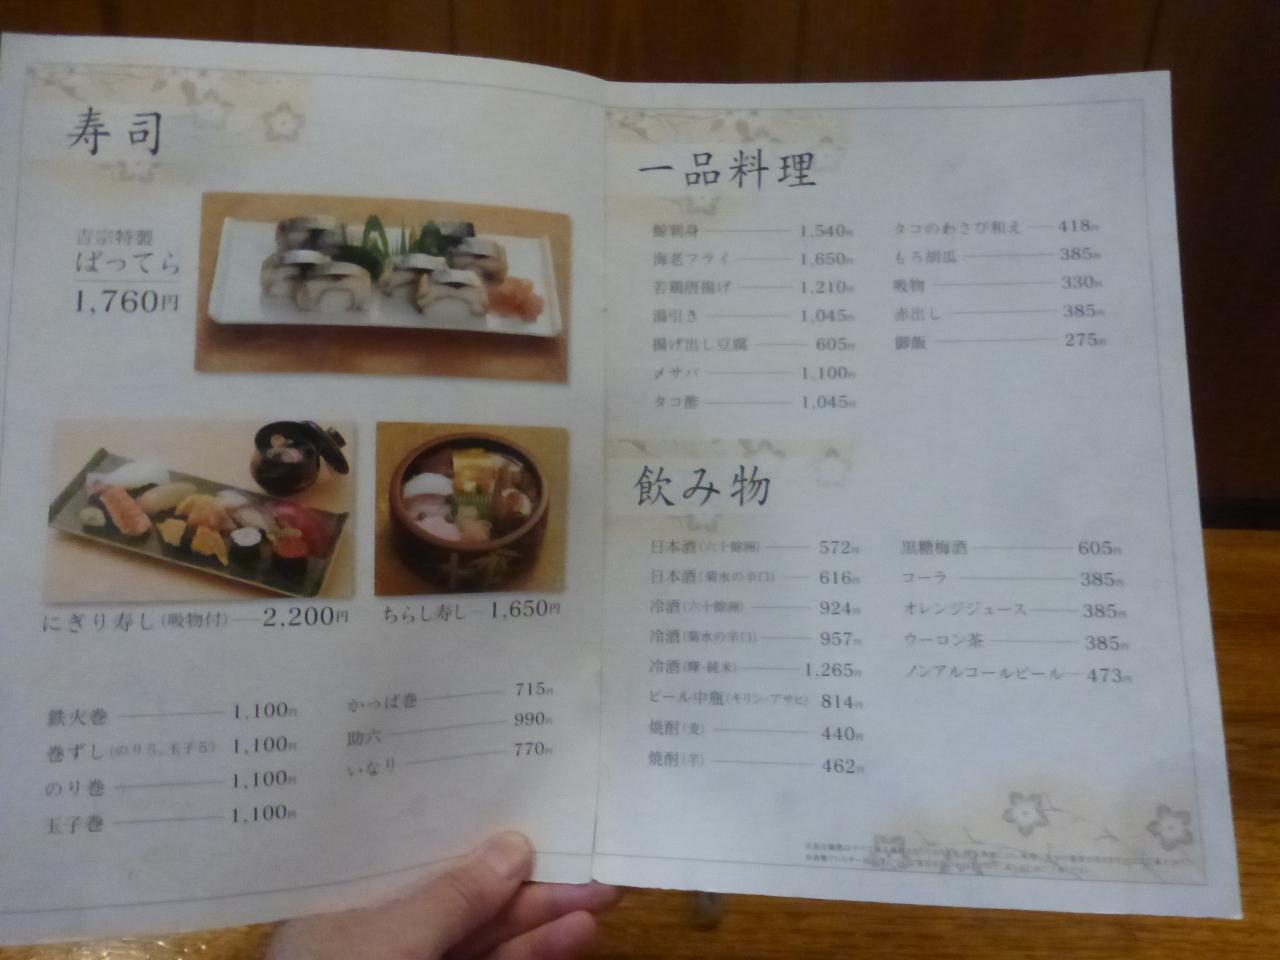 寿司
吉宗特製
ばってら
1,760円
にぎり寿し(吸物付) 2,200円
ちらし寿し 1,650円
鉄火巻 1,100円
巻ずし(のり5、玉子5) 1,100円
のり巻 1,100円
玉子巻 1,100円
かっぱ巻 715円
助六 990円
いなり 770円
一品料理
鯨刺身 1,540円
海老フライ 1,650円
若鶏唐揚げ 1,210円
湯引き 1,045円
揚げ出し豆腐 605円
〆サバ 1,100円
タコ酢 1,045円
タコのわさび和え 418円
もろ胡瓜 385円
吸物 330円
赤出し 385円
御飯 275円
飲み物
日本酒(六十餘洲) 572円
日本酒(菊水の辛口) 616円
冷酒(六十餘洲) 924円
冷酒(菊水の辛口) 957円
冷酒(輝・純米) 1,265円
ビール中瓶(キリン・アサヒ) 814円
焼酎(麦) 440円
焼酎(芋) 462円
黒糖梅酒 605円
コーラ 385円
オレンジジュース 385円
ウーロン茶 385円
ノンアルコールビール 473円